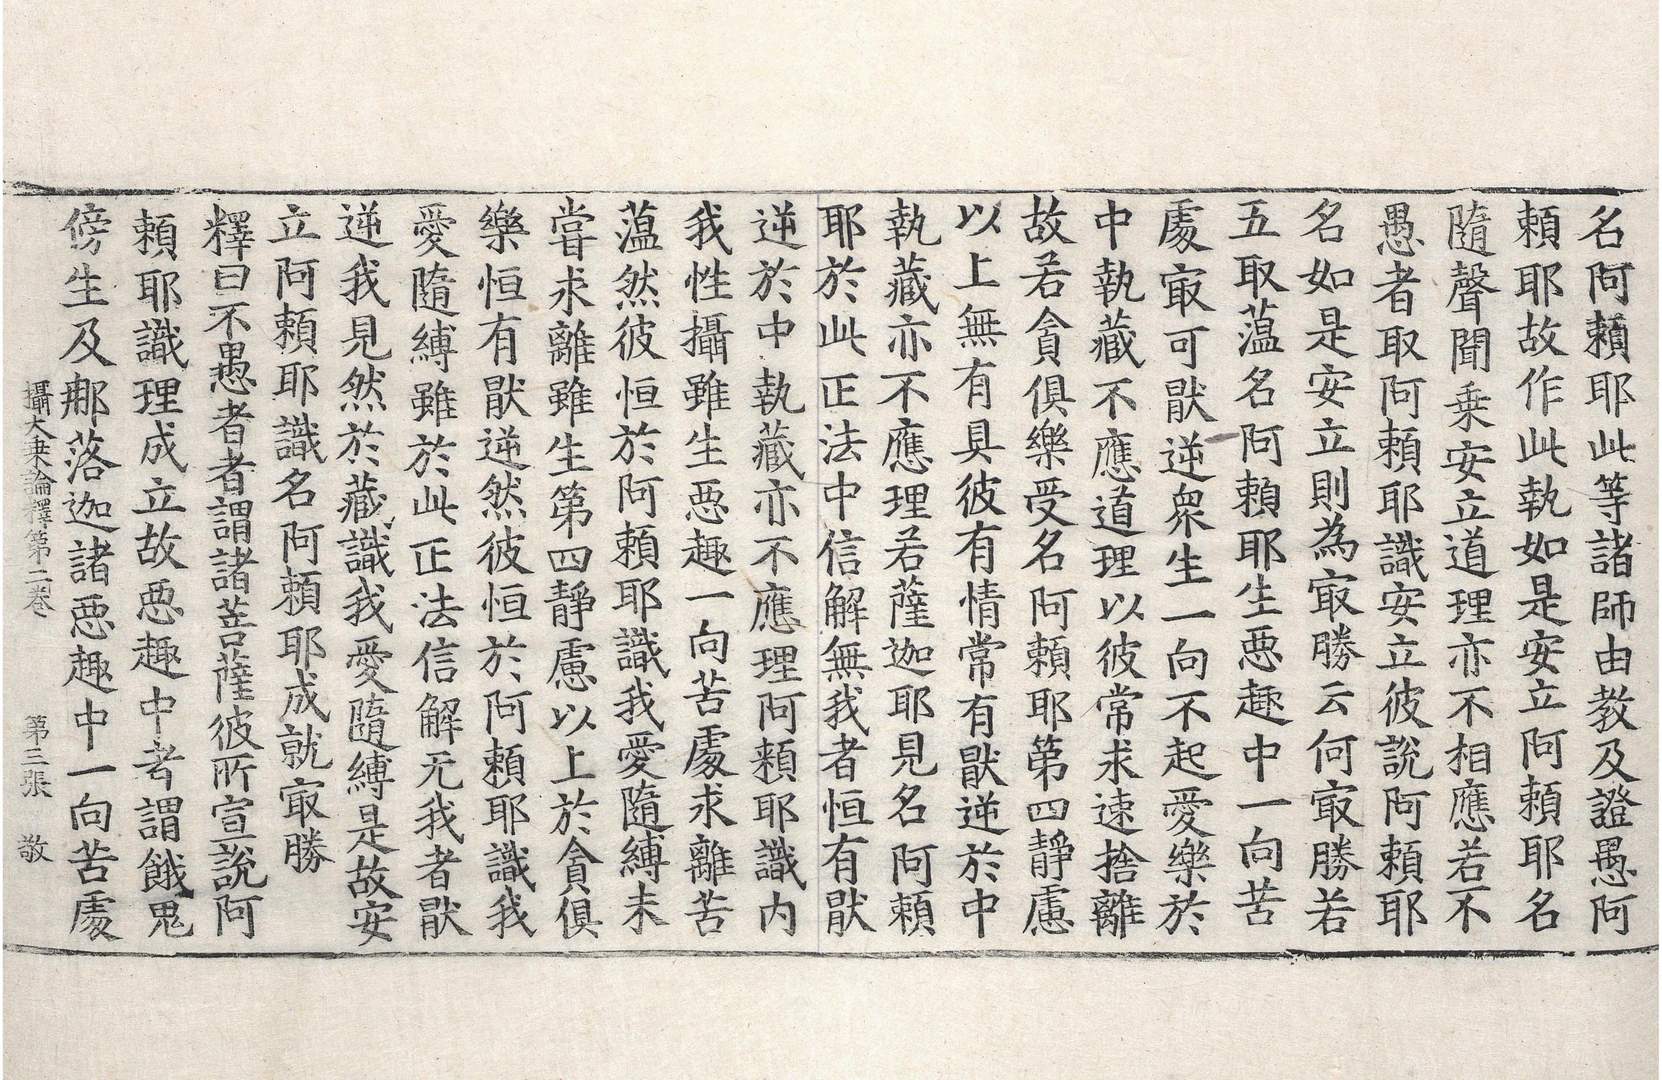 名阿賴耶此等諸師由教及證愚阿
賴耶故作此執如是安立阿賴耶名
隨聲聞乗安立道理亦不相應若不
愚者取阿賴耶識安立彼說阿賴耶
名如是安立則為㝡勝云何㝡勝若
五取薀名阿賴耶生惡趣中一向苦
處㝡可猒逆衆生一向不起愛樂於
中執藏不應道理以彼常求速捨離
故若貪俱樂受名阿賴耶第四靜慮
以上無有具彼有情常有猒逆於中
執藏亦不應理若薩迦耶見名阿賴
耶於此正法中信解無我者恒有猒
逆於中執藏亦不應理阿賴耶識内
我性攝雖生惡趣一向苦處求離苦
薀然彼恒於阿賴耶識我愛隨縛未
嘗求離雖生第四靜慮以上於貪俱
樂恒有猒逆然彼恒於阿賴耶識我
愛隨縛雖於此正法信解无我者猒
逆我見然於藏識我愛隨縛是故安
立阿賴耶識名阿賴耶成就㝡勝
釋曰不愚者者謂諸菩薩彼所宣說阿
賴耶識理成立故惡趣中者謂餓鬼
傍生及那落迦諸惡趣中一向苦處
攝大乗論釋第二卷 第三張 敬